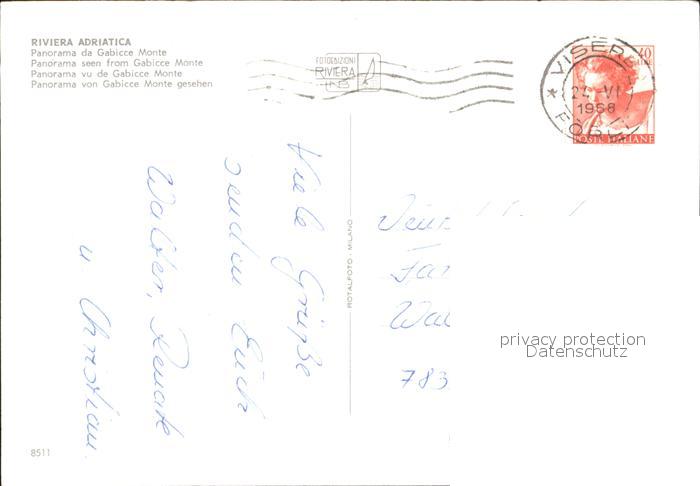 RIVIERA ADRIATICA
Panorama da Gabicce Monte
Panorama seen from Gabicce Monte
Panorama vu de Gabicce Monte
Panorama von Gabicce Monte gesehen
FOTOEDIZIONI
RIVIERA
VISERB
24 VI
1968
FORLI
40
LIRE
POSTE ITALIANE
Viele Grüße
senden Euch
Walter, Renate
u Christian
ROTALFOTO - MILANO
Fa
Wa
783
privacy protection
Datenschutz
8511